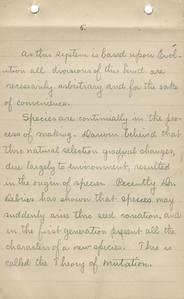 5.
As this system is based upon Evol-
ution all divisions of this kind are
necessarily arbitrary and for the sake
of convenience.
Species are continually in the pro-
cess of making. Darwin believed that
thru natural selection gradual changes,
due largely to environment, resulted
in the origin of species. Recently
DeVries has shown that species may
suddenly arise thru seed variation, and
in the first generation present all the
characters of a new species. This is
called the Theory of Mutation.